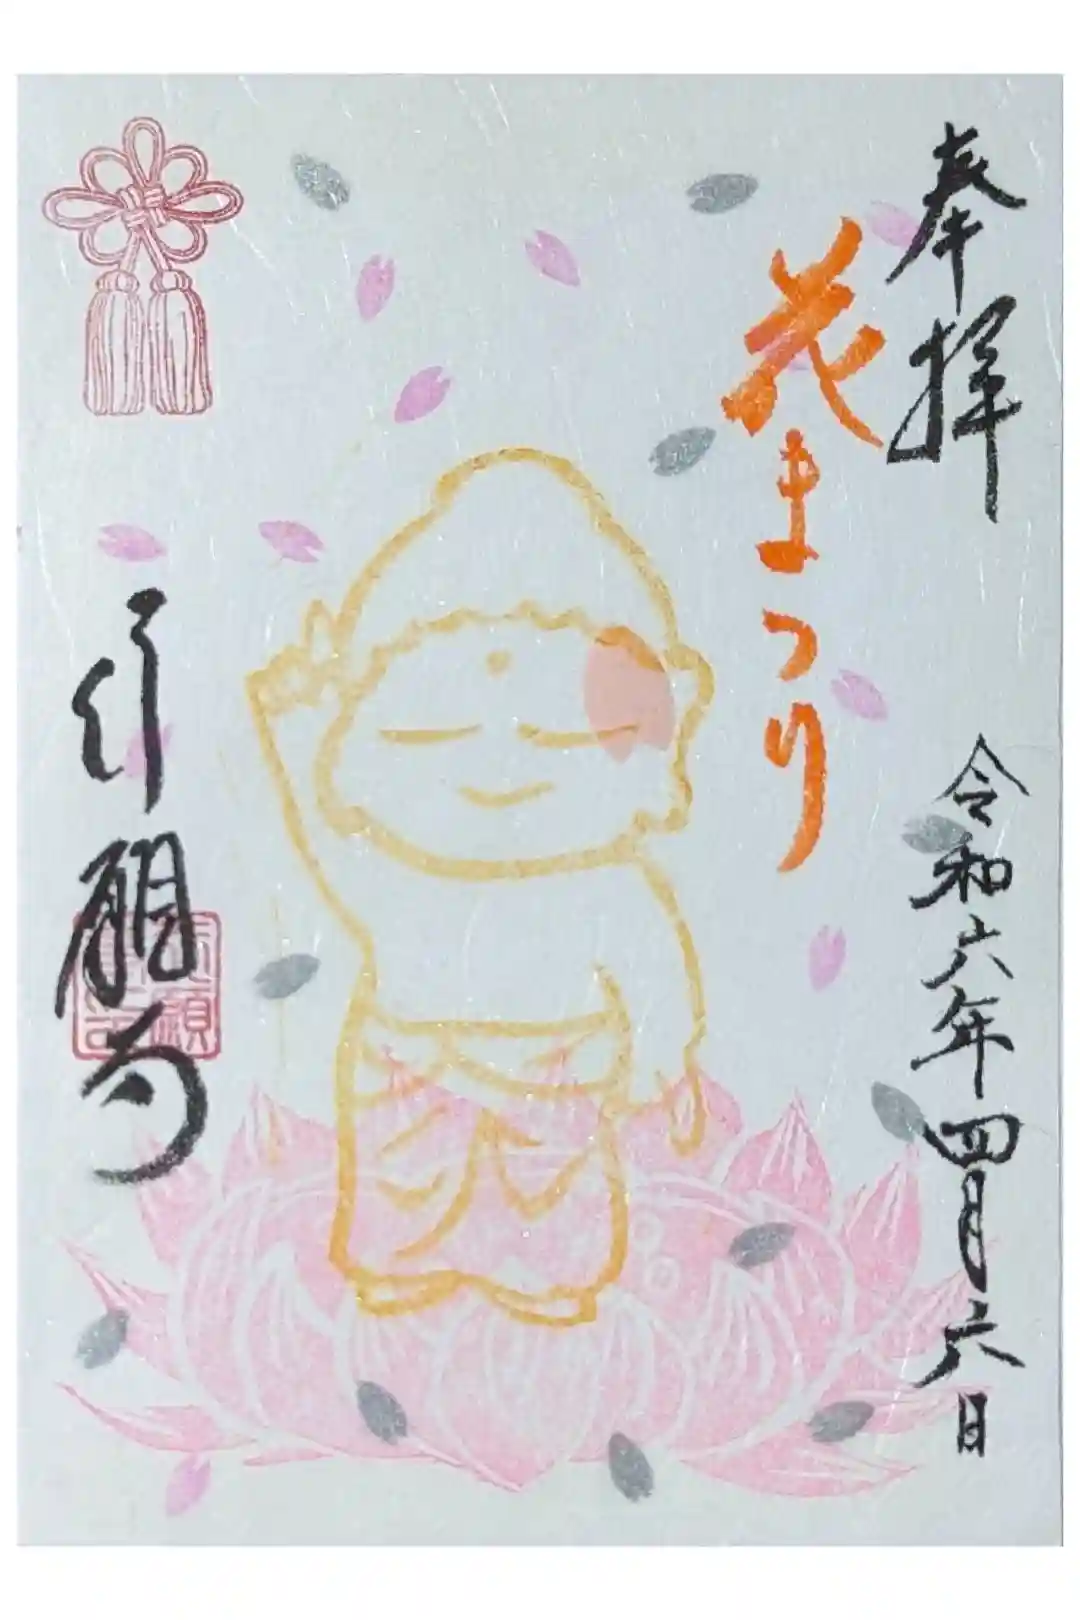 奉拝
花まつり
令和六年四月六日
引